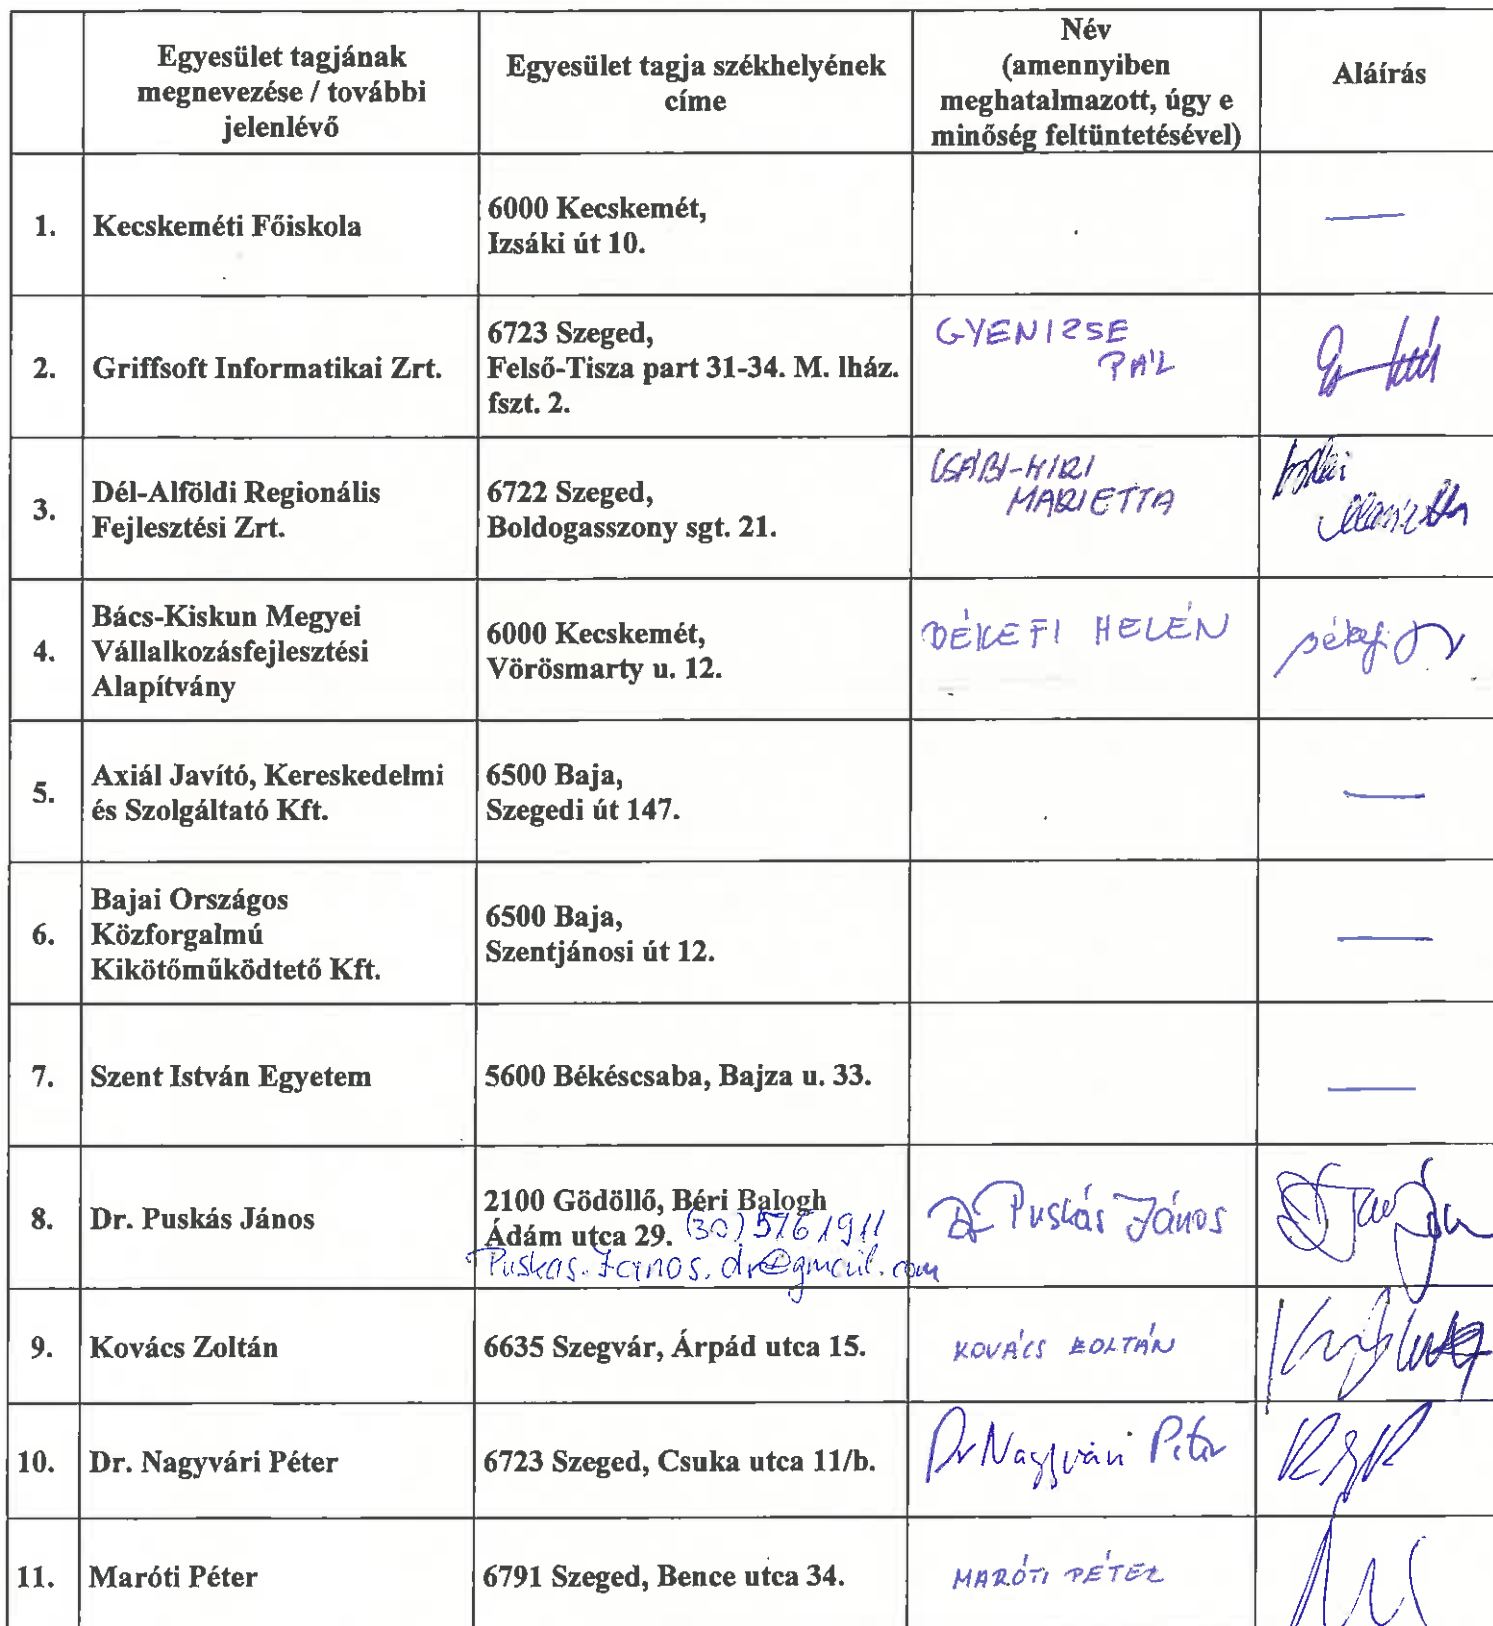 Egyesület tagjának
megnevezése / további
jelenlévő
Egyesület tagja székhelyének
címe
Név
(amennyiben
meghatalmazott, úgy e
minőség feltüntetésével)
Aláírás
1.
Kecskeméti Főiskola
6000 Kecskemét,
Izsáki út 10.
2.
Griffsoft Informatikai Zrt.
6723 Szeged,
Felső-Tisza part 31-34. M. lház.
fszt. 2.
GYENIZSE
PÁL
3.
Dél-Alföldi Regionális
Fejlesztési Zrt.
6722 Szeged,
Boldogasszony sgt. 21.
CSÁBI-HIRI
MARIETTA
4.
Bács-Kiskun Megyei
Vállalkozásfejlesztési
Alapítvány
6000 Kecskemét,
Vörösmarty u. 12.
BÉKEFI HELÉN
5.
Axiál Javító, Kereskedelmi
és Szolgáltató Kft.
6500 Baja,
Szegedi út 147.
6.
Bajai Országos
Közforgalmú
Kikötőműködtető Kft.
6500 Baja,
Szentjánosi út 12.
7.
Szent István Egyetem
5600 Békéscsaba, Bajza u. 33.
8.
Dr. Puskás János
2100 Gödöllő, Béri Balogh
Ádám utca 29. (30) 576 1911
Puskas.Janos.dr@gmail.com
Dr Puskás János
9.
Kovács Zoltán
6635 Szegvár, Árpád utca 15.
KOVÁCS ZOLTÁN
10.
Dr. Nagyvári Péter
6723 Szeged, Csuka utca 11/b.
Dr Nagyvári Péter
11.
Maróti Péter
6791 Szeged, Bence utca 34.
MARÓTI PÉTER